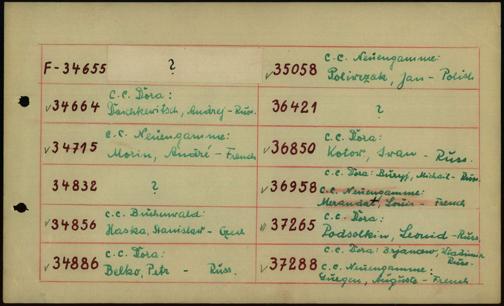 F-34655 ?
34664 C.C. Dora:
Daschkewitsch, Andrej - Russ.
34715 C.C. Neuengamme:
Morin, André - French
34832 ?
34856 C.C. Buchenwald:
Haska, Stanislav - Czech
34886 C.C. Dora:
Belko, Petr - Russ.
35058 C.C. Neuengamme:
Poliwczak, Jan - Polish
36421 ?
36850 C.C. Dora:
Kotov, Ivan - Russ.
36958 C.C. Dora: Buryj, Mihail - Russ.
C.C. Neuengamme:
Louis - French
37265 C.C. Dora:
Podsolkin, Leonid - Russ.
37288 C.C. Dora: Wladimir
Russ.
C.C. Neuengamme:
Guegen, Auguste - French